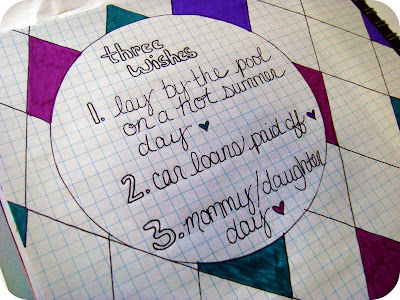 three
wishes
1. lay by the pool
on a hot summer
day
2. car loans paid off
3. mommy/daughter
day